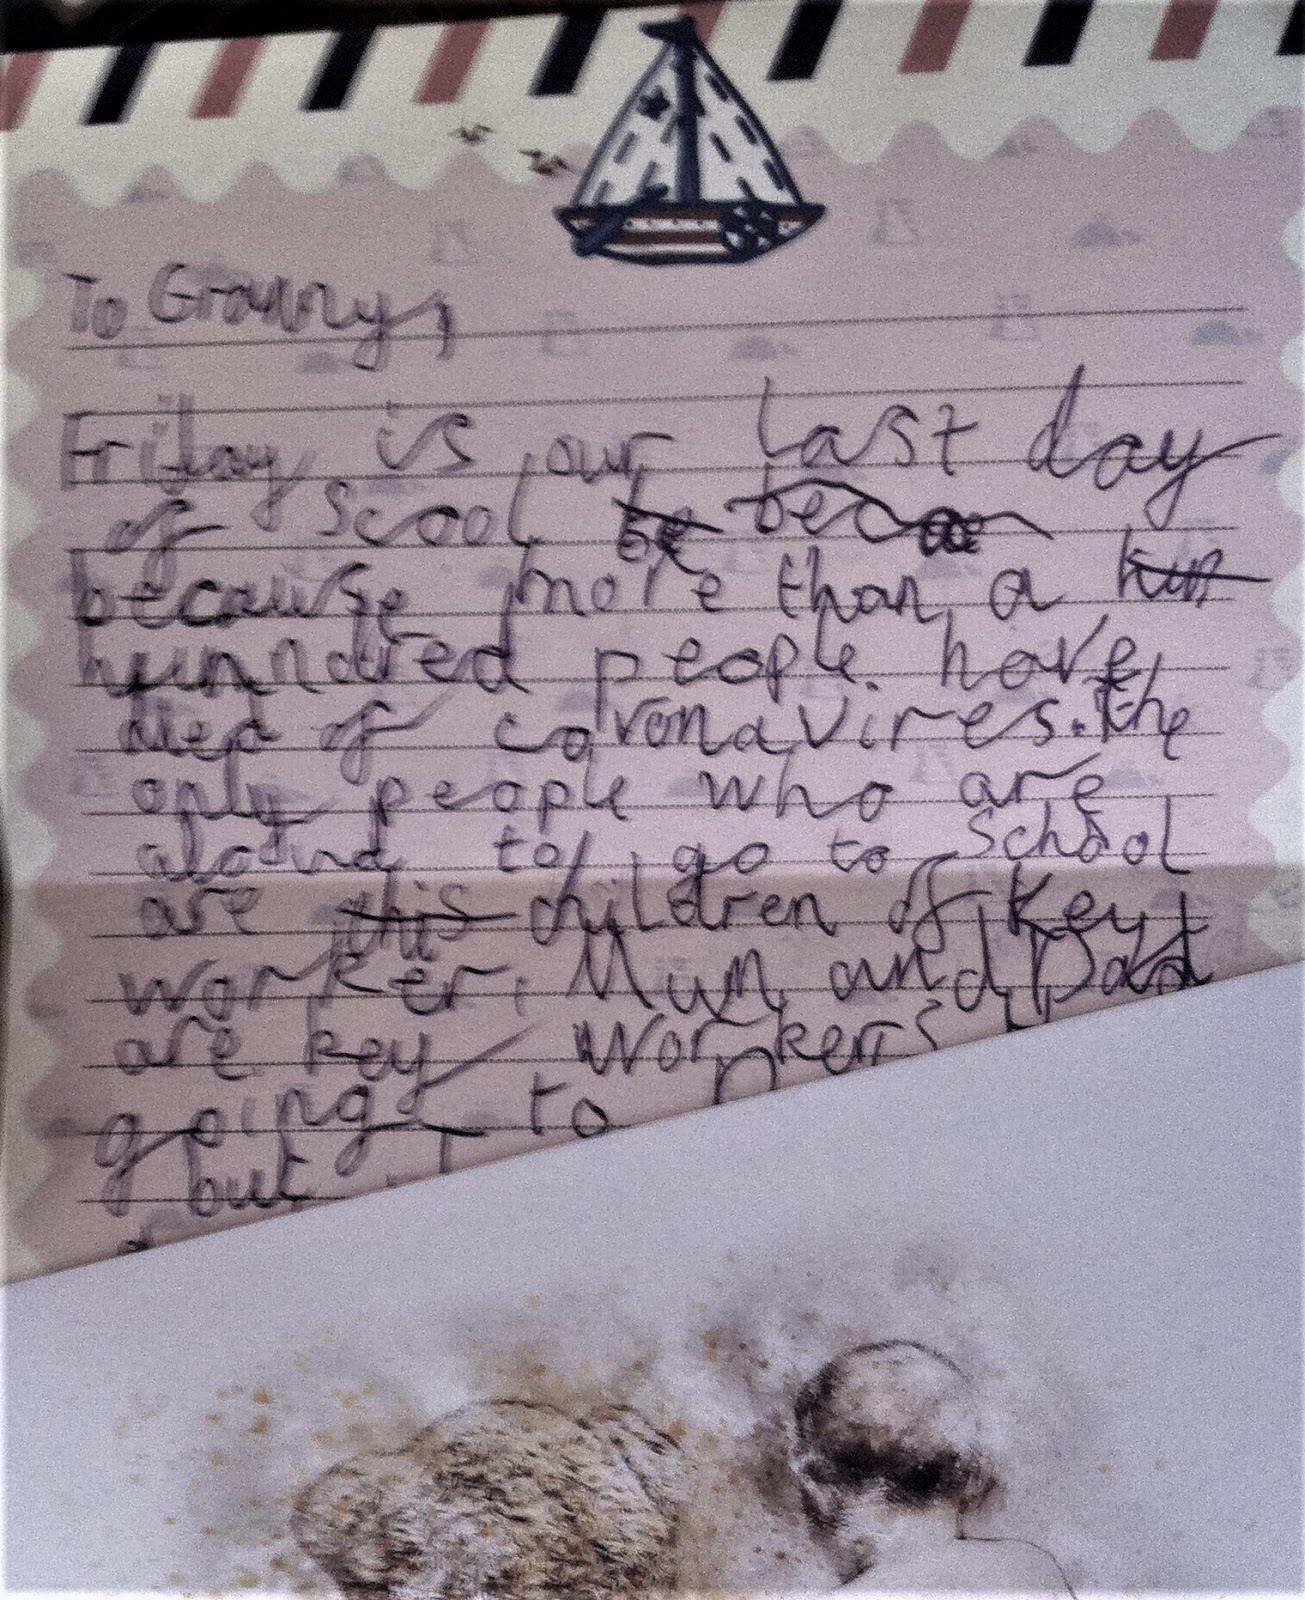 To Granny,
Friday is our last day
of Scool be beca
because more than a hun
hunndred people. have
died of coronavires. the
only people who are
to go to school
are this children of key
worker. Mum and Dad
are key workers
going to
but